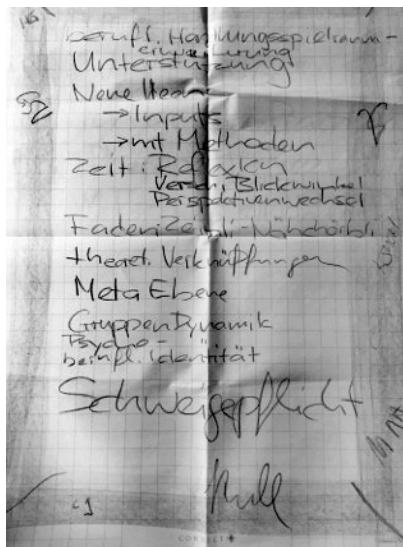 berufl. Handlungsspielraum-
erweiterung
Unterstützung
Neue Ideen
→ Inputs
→ mit Methoden
Zeit: Reflexion
Versch. Blickwinkel
Perspektivenwechsel
Faden
theoret. Verknüpfungen
Meta Ebene
GruppenDynamik
Psycho-
berufl. Identität
Schweigepflicht